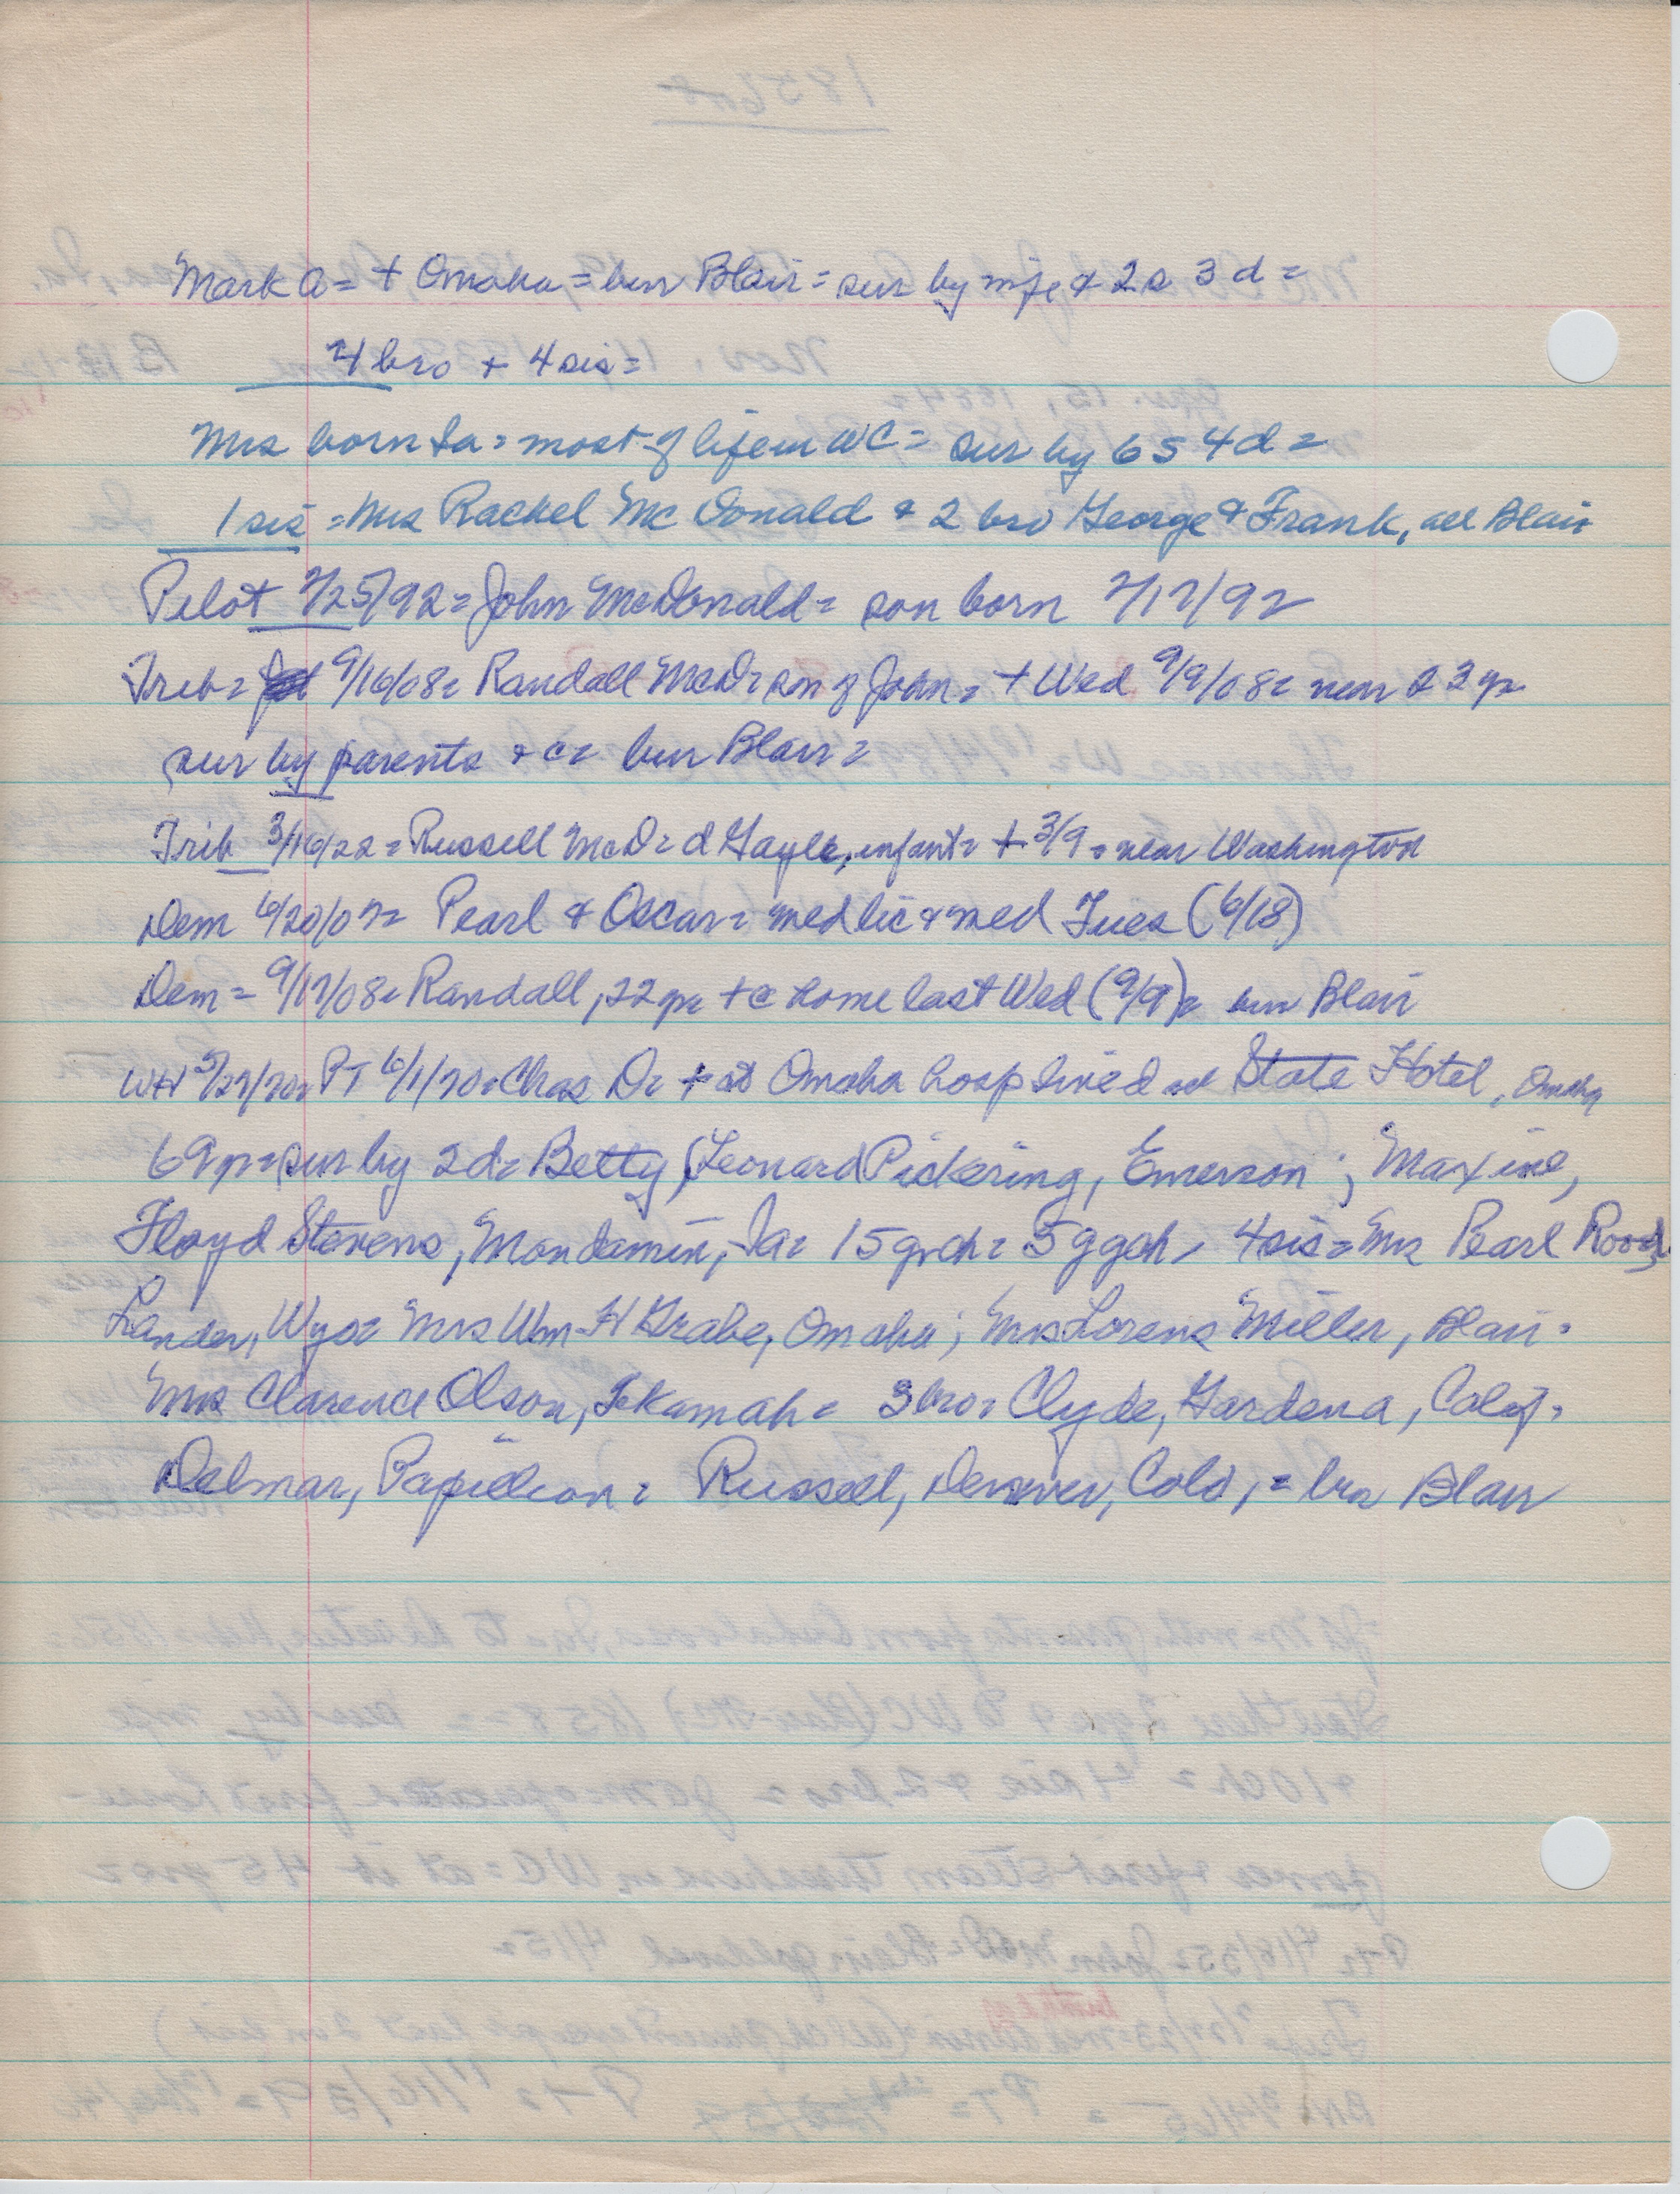 Mark A = + Omaha = bur Blair = sur by wife & 2 s 3 d =
4 bro + 4 sis =
Mrs born Ia = most of life in WC = sur by 6 S 4 d =
1 sis = Mrs Rachel McDonald & 2 bro George & Frank, all Blair
Pilot 2/25/92 = John McDonald = son born 2/17/92
Trib = 9/16/08 = Randall McD = son of John = + Wed 9/9/08 = near 22 yr
sur by parents & c = bur Blair =
Trib 3/16/22 = Russell McD = d Gayle, infant = + 3/9 = near Washington
Dem 6/20/07 = Pearl & Oscar = med lic & med Tues (6/18)
Dem = 9/17/08 = Randall, 22 yr = + @ home last Wed (9/9) = bur Blair
5/27/70 = PT 6/1/70 = Chas D = + at Omaha hosp lived at State Hotel, Omaha
69 yr = sur by 2 d = Betty (Leonard Pickering, Emerson ; Maxine,
Floyd Stevens, Mondamin, Ia = 15 grch = 5 ggch, 4 sis = Mrs Pearl Rood,
Lander, Wyo = Mrs Wm H Grabe, Omaha ; Mrs Lorens Miller, Blair =
Mrs Clarence Olson, Tekamah = 3 bro = Clyde, Gardena, Calif =
Delmar, Papillion = Russell, Denver, Colo, = bur Blair